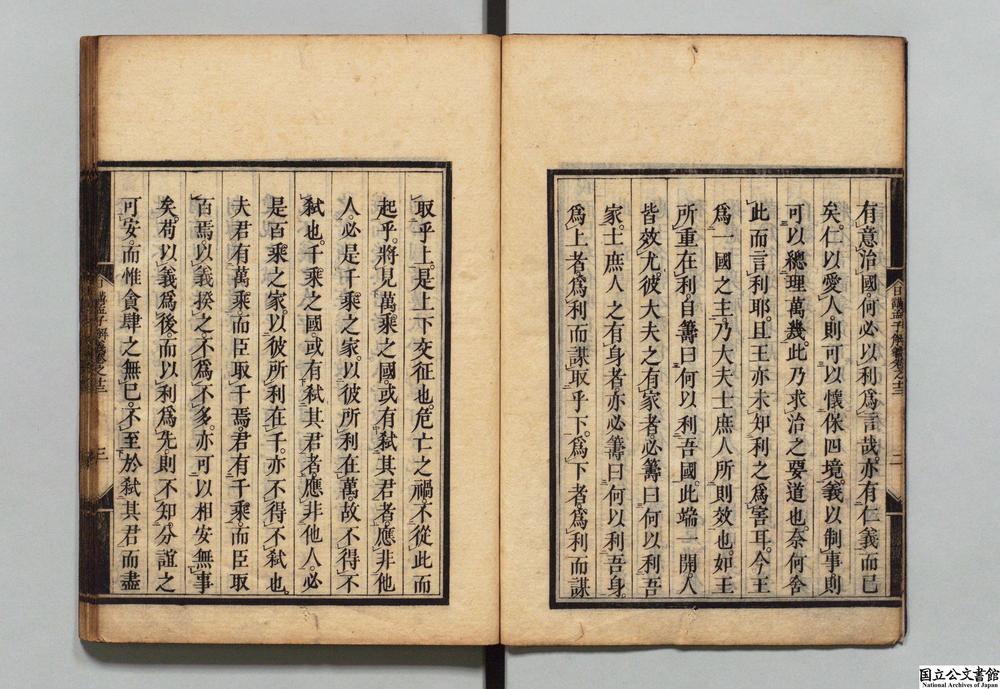 有意治國。何必以利爲言哉。亦有仁義而已
矣。仁以愛人。則可以懷保四境。義以制事則
可以總理萬幾。此乃求治之要道也。奈何舍
此而言利耶。且王亦未知利之爲害耳。今王
爲一國之主。乃大夫士庶人所則效也。如王
所重在利。自籌曰。何以利吾國。此端一開。人
皆效尤。彼大夫之有家者。必籌曰何以利吾
家。士庶人之有身者。亦必籌曰。何以利吾身。
爲上者。爲利而謀取乎下。爲下者。爲利而謀
日講孟子解義卷之十三
二
取乎上。是上下交征也。危亡之禍。不從此而
起乎。將見萬乘之國。或有弑其君者。應非他
人。必是千乘之家。以彼所利在萬。故不得不
弑也。千乘之國。或有弑其君者。應非他人。必
是百乘之家。以彼所利在千。亦不得不弑也。
夫君有萬乘。而臣取千焉。君有千乘。而臣取
百焉。以義揆之。不爲不多。亦可以相安無事
矣。苟以義爲後。而以利爲先。則不知分誼之
可安。而惟貪肆之無已。不至於弑其君而盡
日講孟子解義卷之十三
三
国立公文書館
National Archives of Japan